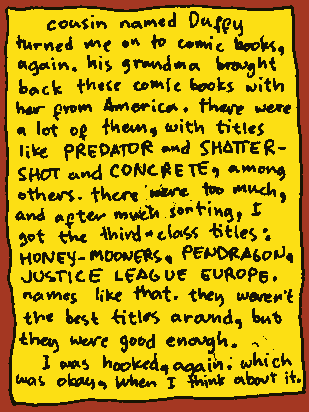 cousin named Duffy
turned me on to comic books,
again. his grandma brought
back these comic books with
her from America. there were
a lot of them, with titles
like PREDATOR and SHATTER-
SHOT and CONCRETE, among
others. there were too much,
and after much sorting, I
got the third-class titles:
HONEY-MOONERS, PENDRAGON,
JUSTICE LEAGUE EUROPE.
names like that. they weren't
the best titles around, but
they were good enough.
I was hooked, again. which
was okay, when I think about it.